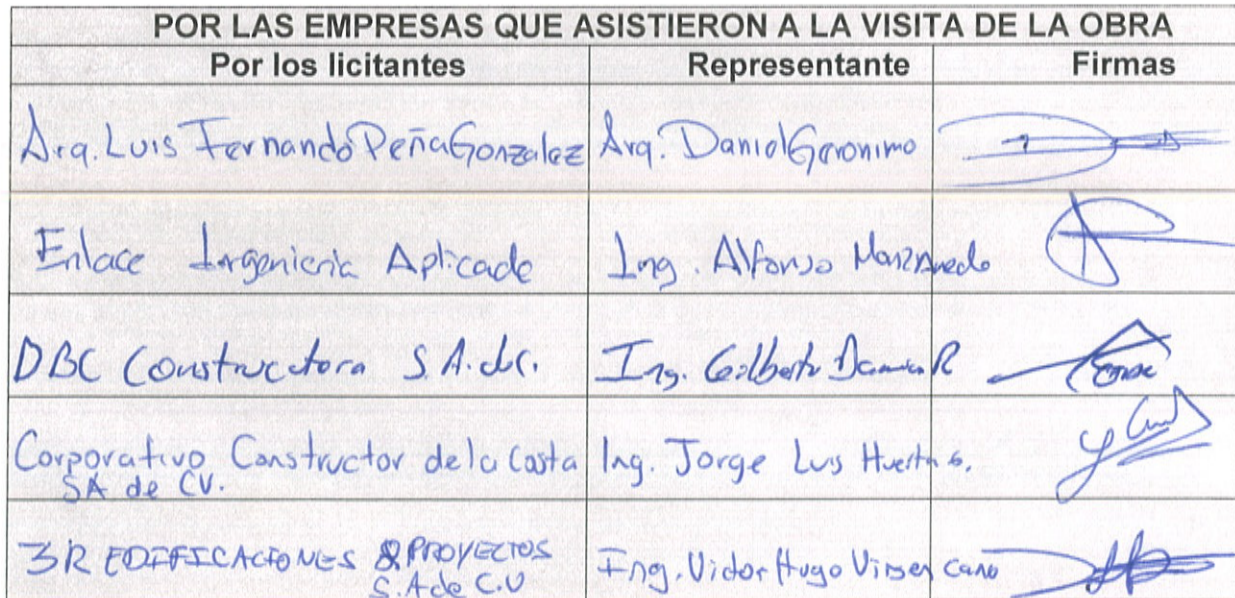 POR LAS EMPRESAS QUE ASISTIERON A LA VISITA DE LA OBRA
Por los licitantes Representante Firmas
Arq. Luis Fernando Peña Gonzalez Arq. Daniel Geronimo
Enlace Ingenieria Aplicada Ing. Alfonso Manzanedo
DBC Constructora S.A. de C. Ing. Gilberto Damian R
Corporativo Constructor de la Costa Ing. Jorge Luis Huerta S.
SA de CV.
3R EDIFICACIONES & PROYECTOS Ing. Victor Hugo Virgen Cano
S.A de C.V